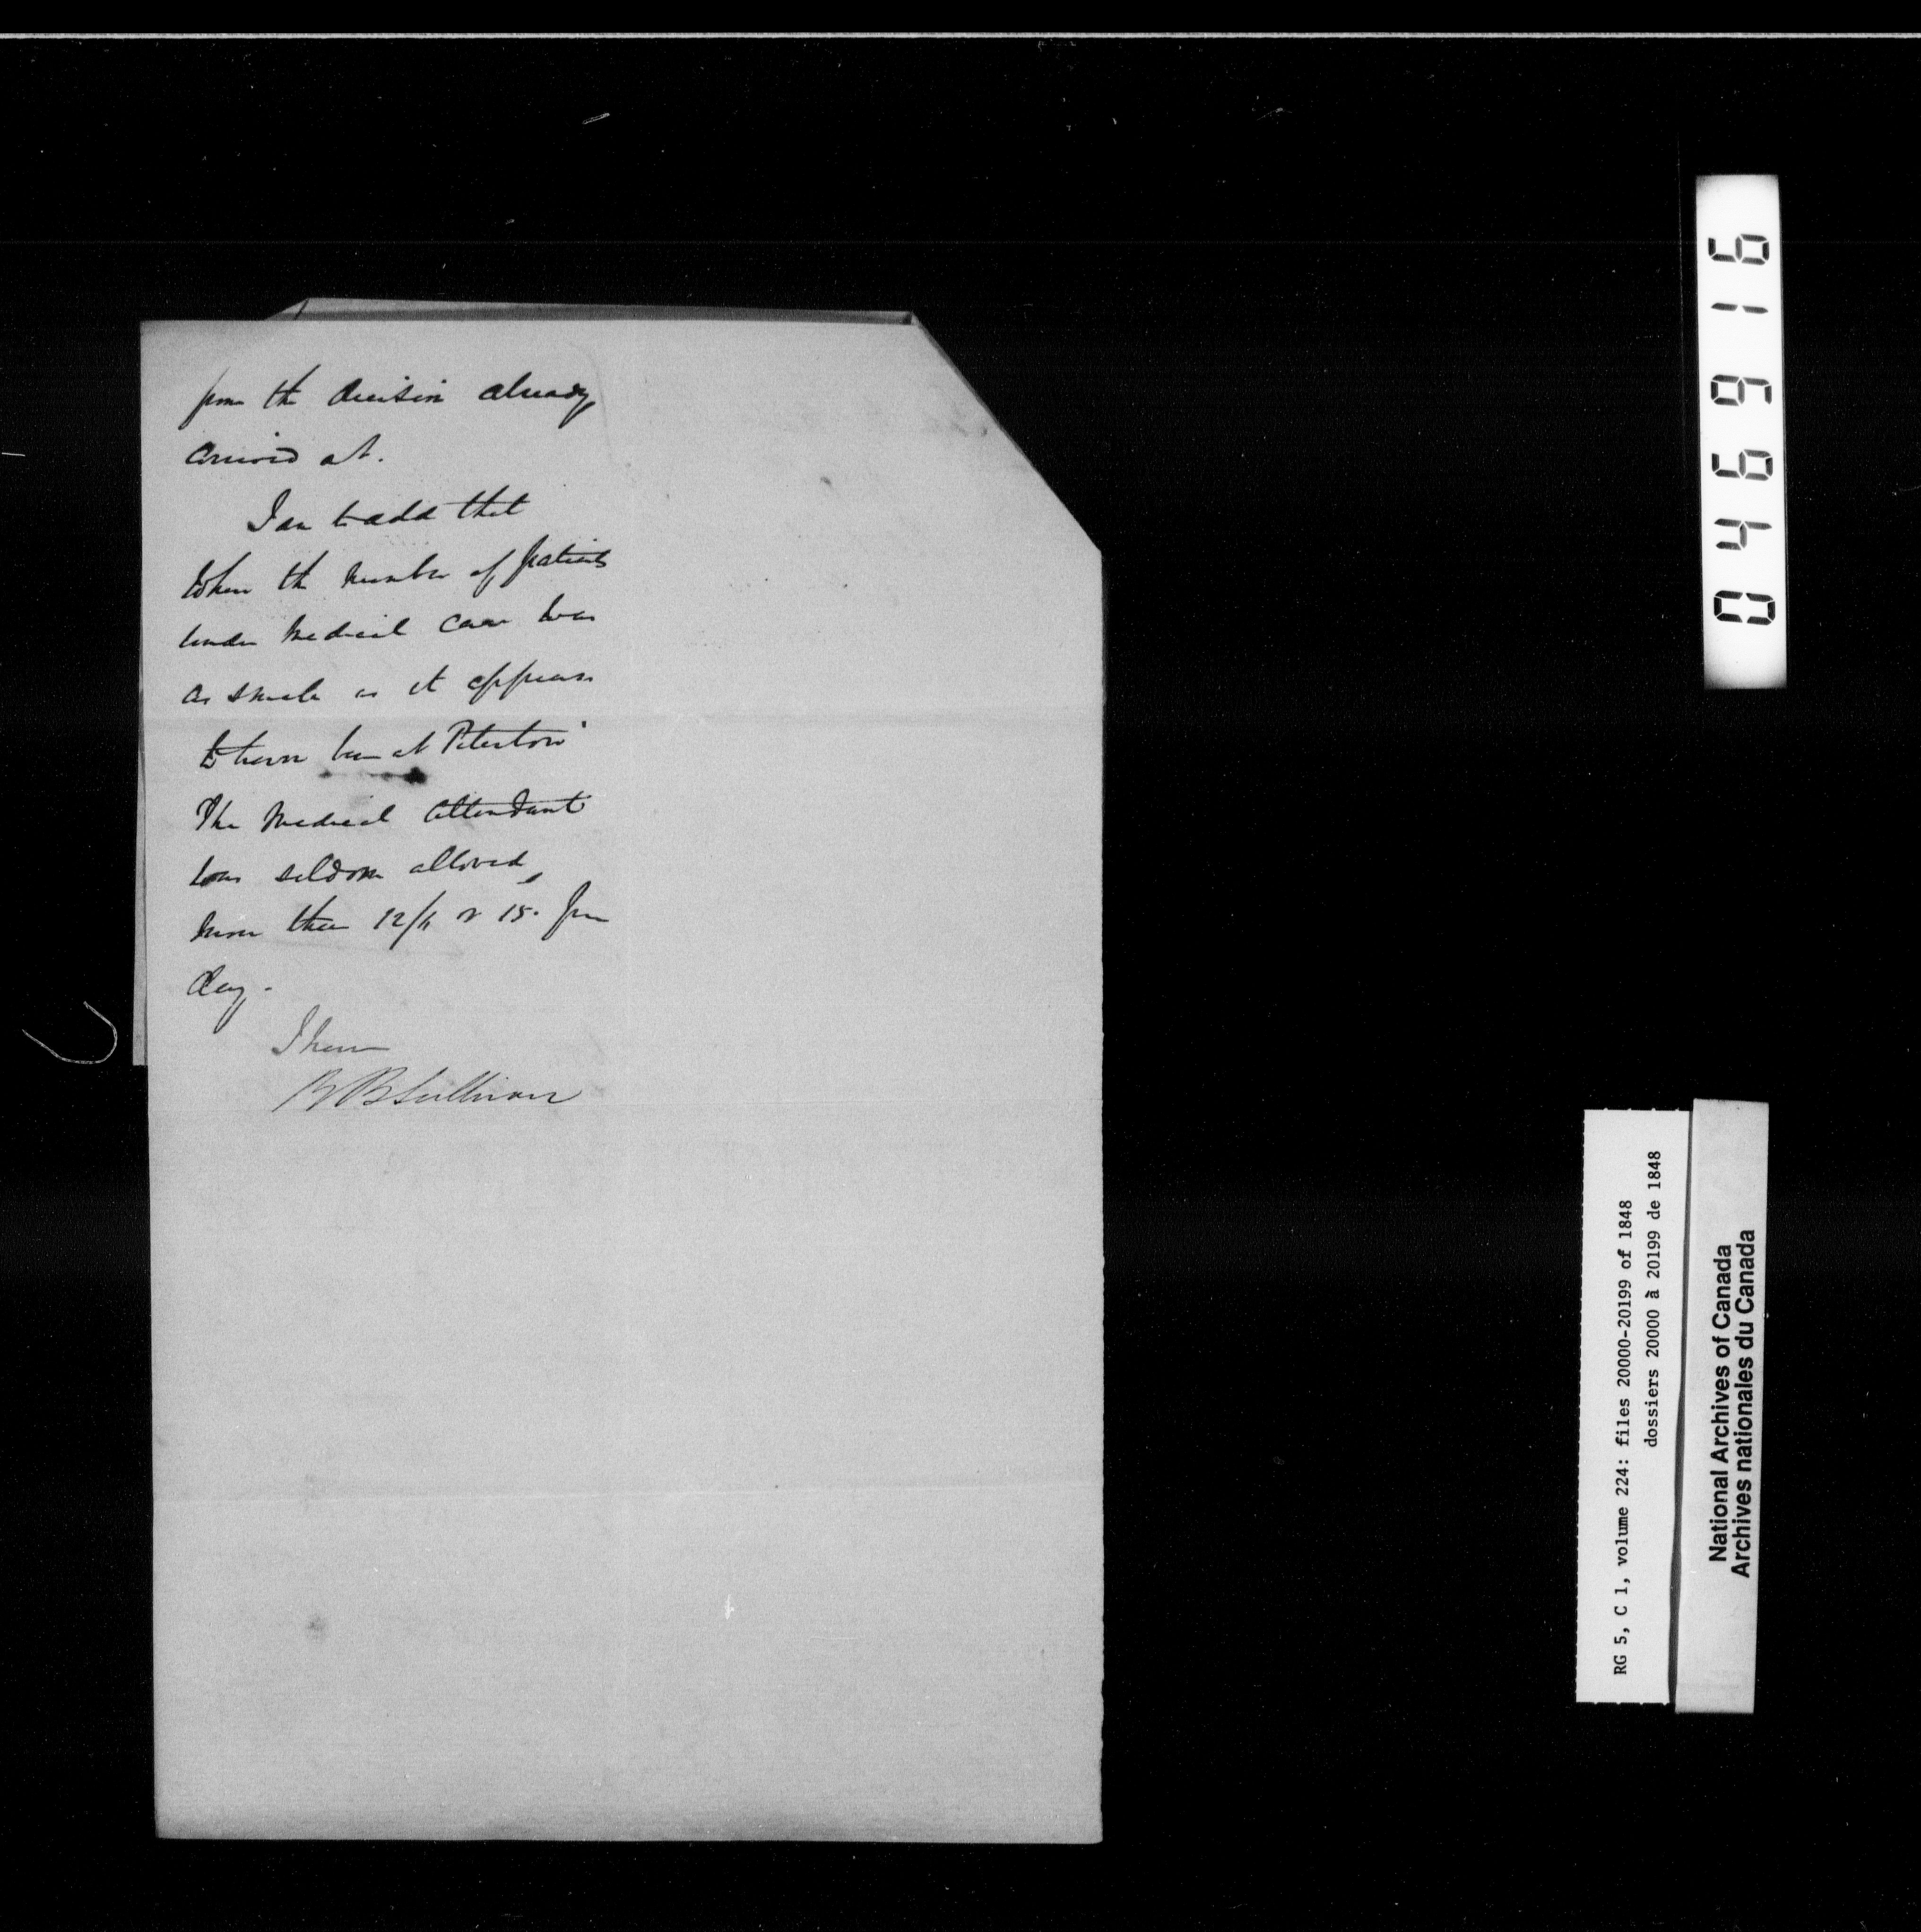 from the decision already
arrived at.
I am to add that
when the number of patients
under medical care was
as small as it appears
to have been at Picton
The Medical Attendant
was seldom allowed
more than 12/6 or 15. per
day.
I have
R B Sullivan
046916
RG 5, C 1, volume 224: files 20000-20199 of 1848
dossiers 20000 à 20199 de 1848
National Archives of Canada
Archives nationales du Canada